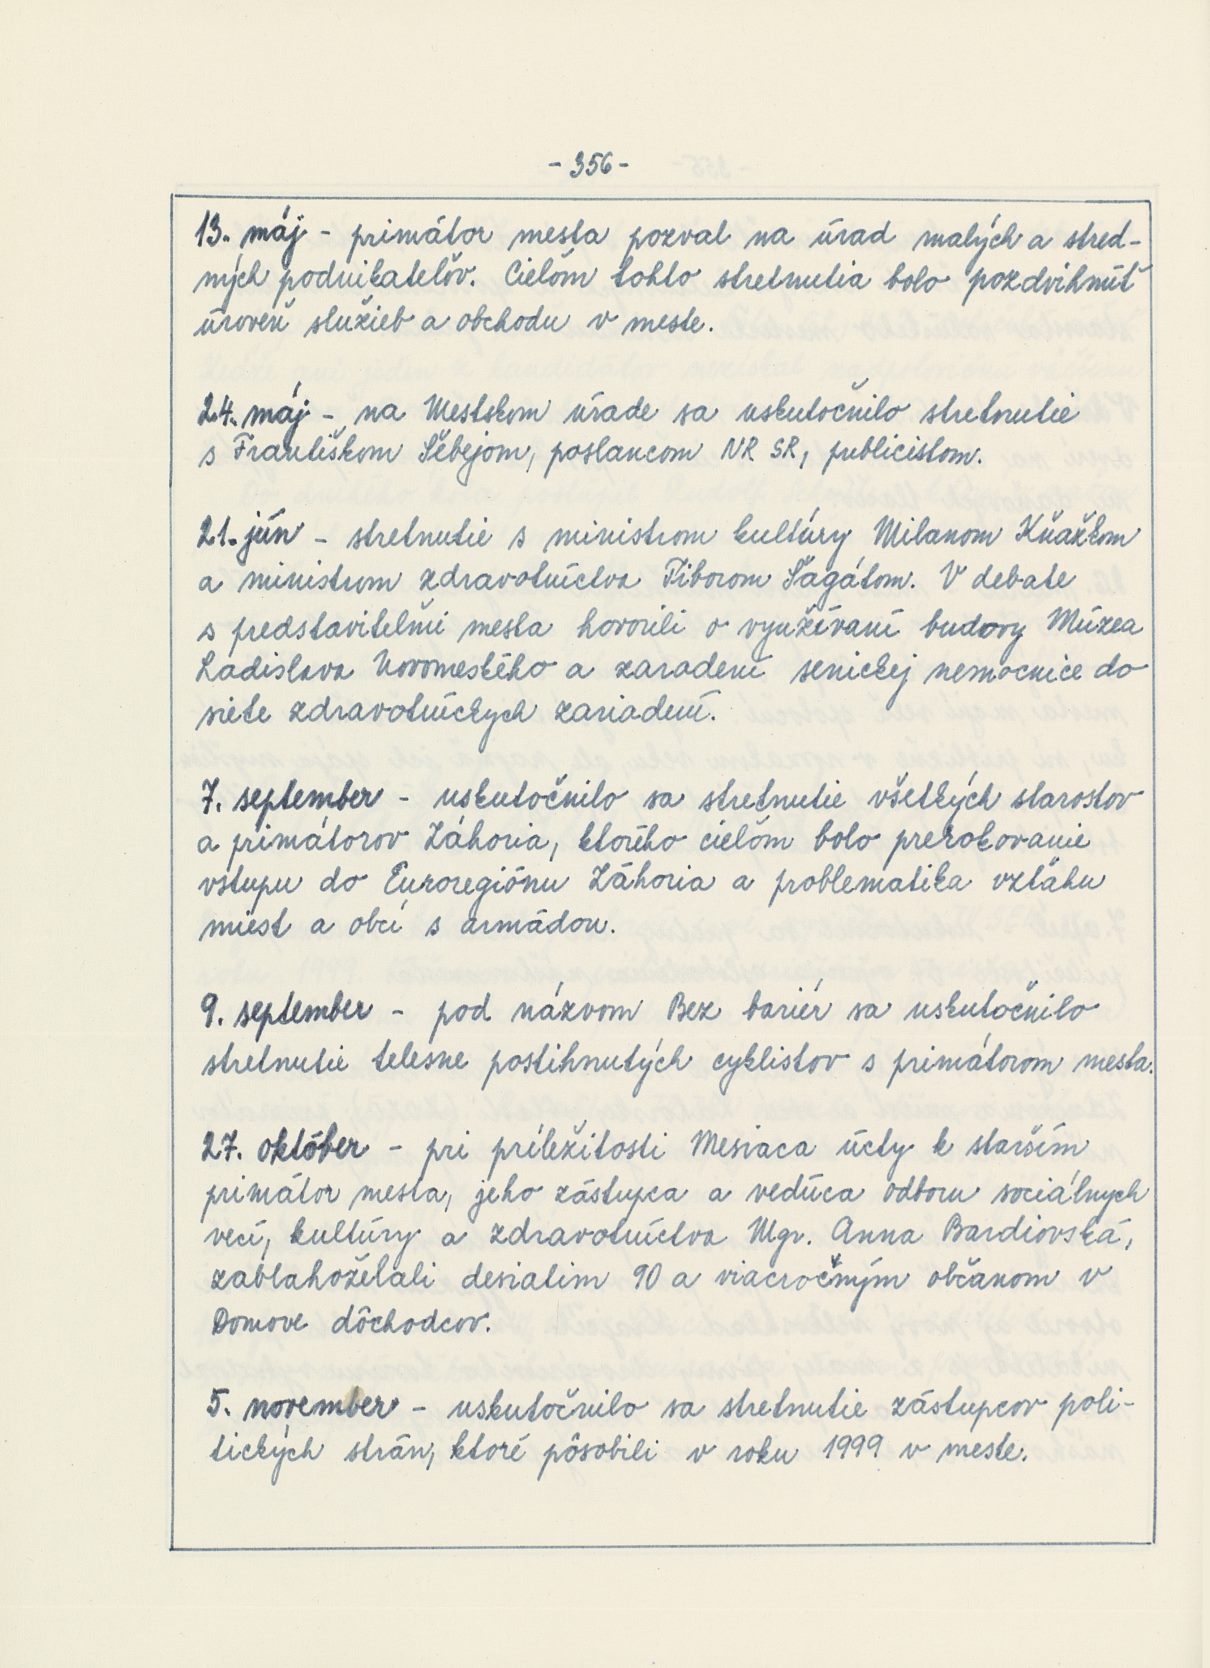 - 356 -
13. máj - primátor mesta pozval na úrad malých a stred-
ných podnikateľov. Cieľom tohto stretnutia bolo pozdvihnúť
úroveň služieb a obchodu v meste.
24. máj - na Mestskom úrade sa uskutočnilo stretnutie
s Františkom Šebejom, poslancom NR SR, publicistom.
21. jún - stretnutie s ministrom kultúry Milanom Kňažkom
a ministrom zdravotníctva Tiborom Šagátom. V debate
s predstaviteľmi mesta hovorili o využívaní budovy Múzea
Ladislava Novomeského a zaradení senickej nemocnice do
siete zdravotníckych zariadení.
7. september - uskutočnilo sa stretnutie všetkých starostov
a primátorov Záhoria, ktorého cieľom bolo prerokovanie
vstupu do Euroregiónu Záhoria a problematika vzťahu
miest a obcí s armádou.
9. september - pod názvom Bez bariér sa uskutočnilo
stretnutie telesne postihnutých cyklistov s primátorom mesta.
27. október - pri príležitosti Mesiaca úcty k starším
primátor mesta, jeho zástupca a vedúca odboru sociálnych
vecí, kultúry a zdravotníctva Mgr. Anna Bardiovská,
zablahoželali desiatim 90 a viacročným občanom v
Domove dôchodcov.
5. november - uskutočnilo sa stretnutie zástupcov poli-
tických strán, ktoré pôsobili v roku 1999 v meste.